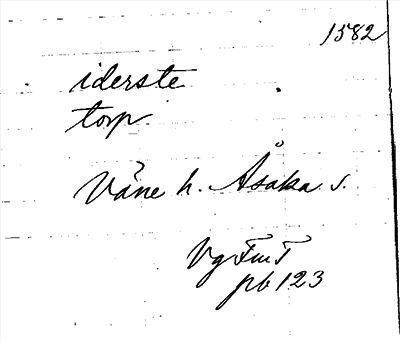 1582
iderste
torp
Våne h. Åsaka s.
VgFmT
pb 123